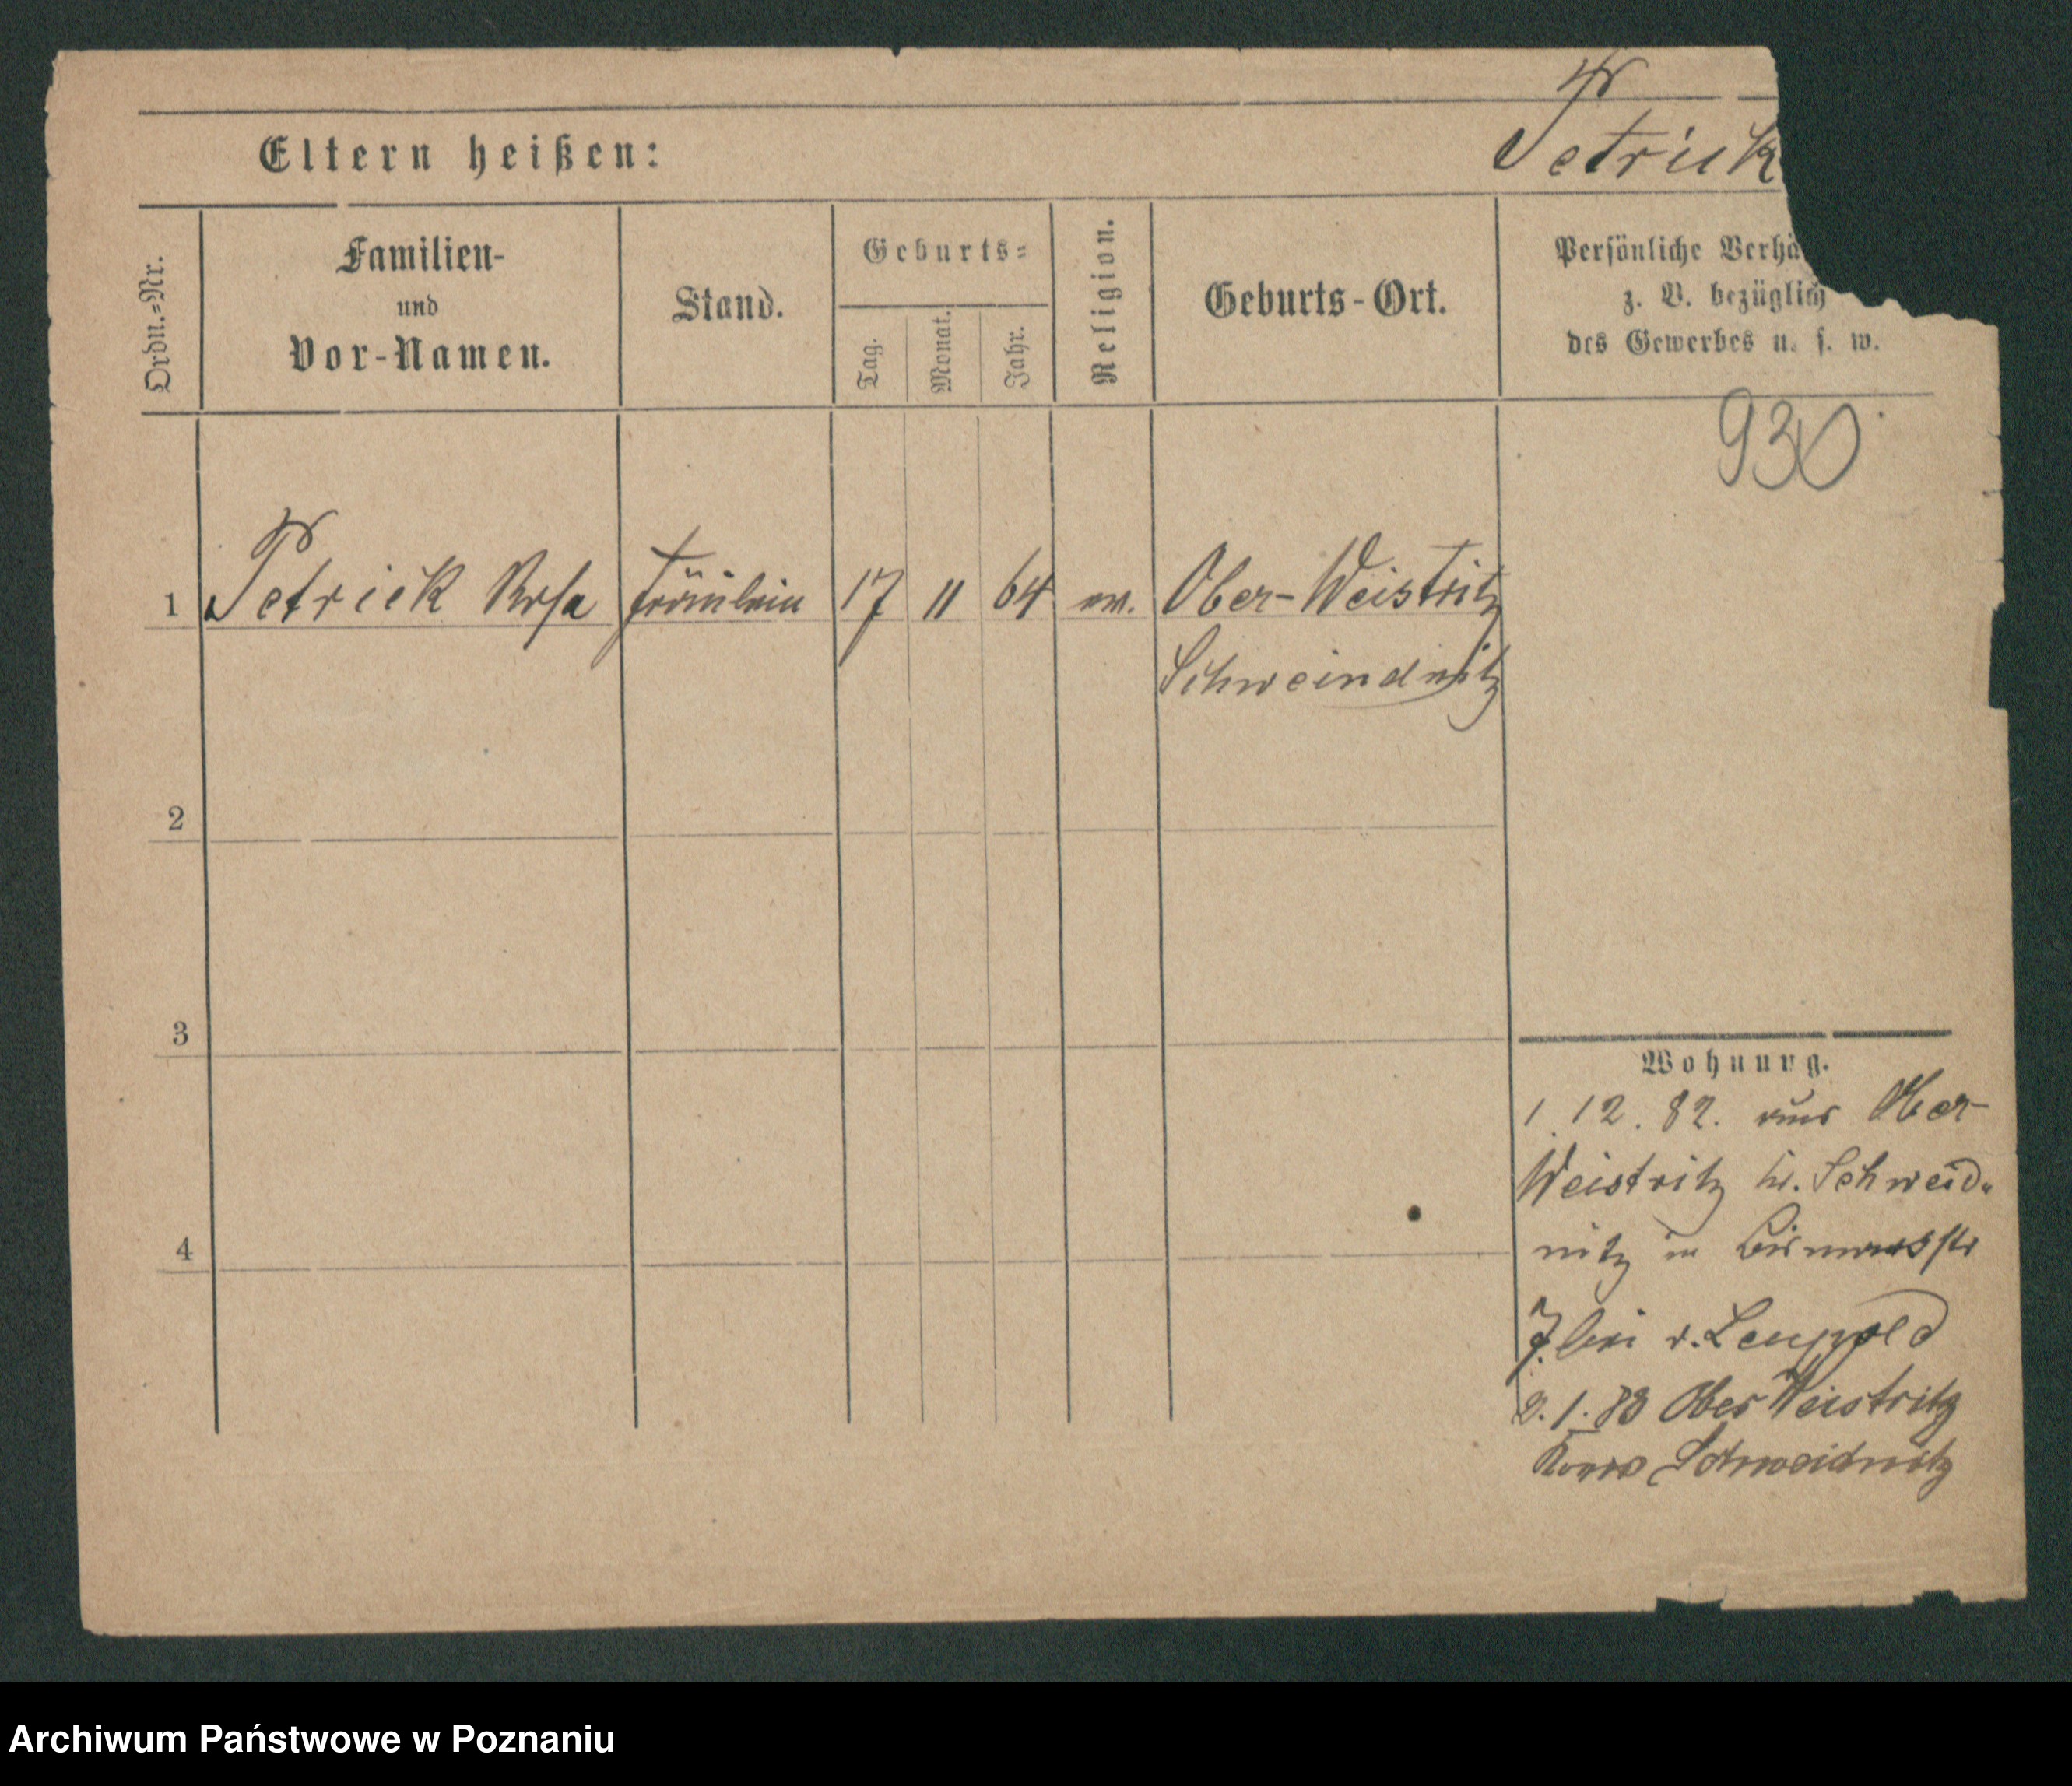 Petrick
Eltern heißen:
Ordn.=Nr.
Familien-
und
Vor-Namen.
Stand.
Geburts=
Tag.
Monat.
Jahr.
Religion.
Geburts-Ort.
Persönliche Verhä
z. B. bezüglich
des Gewerbes u. s. w.
930
1 Petrick Rosa Fräulein 17 11 64 ev. Ober-Weistritz
Schweindnitz
2
3
4
Wohnung.
1. 12. 82. aus Ober-
Weistritz Schweid-
nitz in
7. bei v. Leupold
2. 1. 83 Ober Weistritz
Schweidnitz
Archiwum Państwowe w Poznaniu